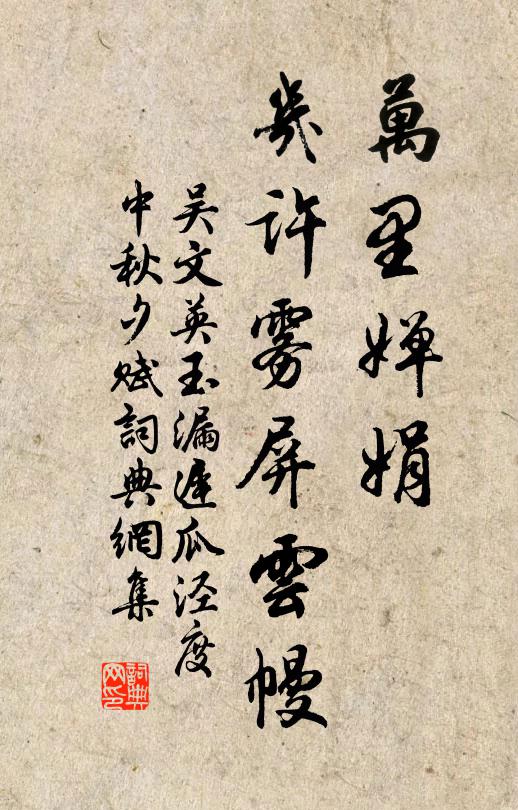 萬里嬋娟
幾許霧屏雲幔
吴文英玉漏遲瓜泾度
中秋夕賦詞典網集
詞典
网印